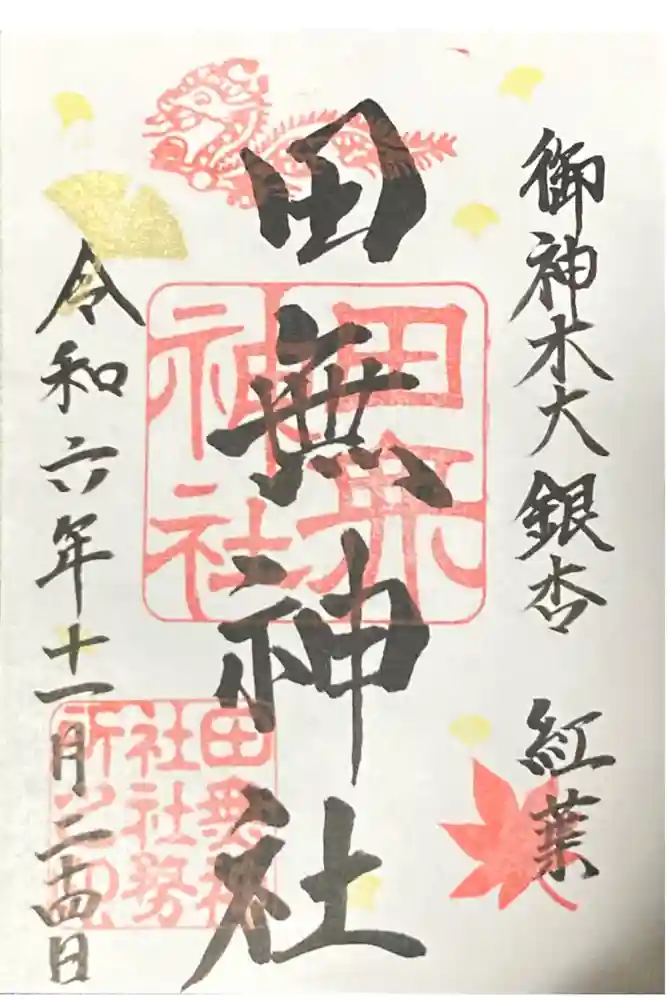 御神木大銀杏 紅葉
田無神社
令和六年十一月二十四日
田無神社
田無神社社務所之印